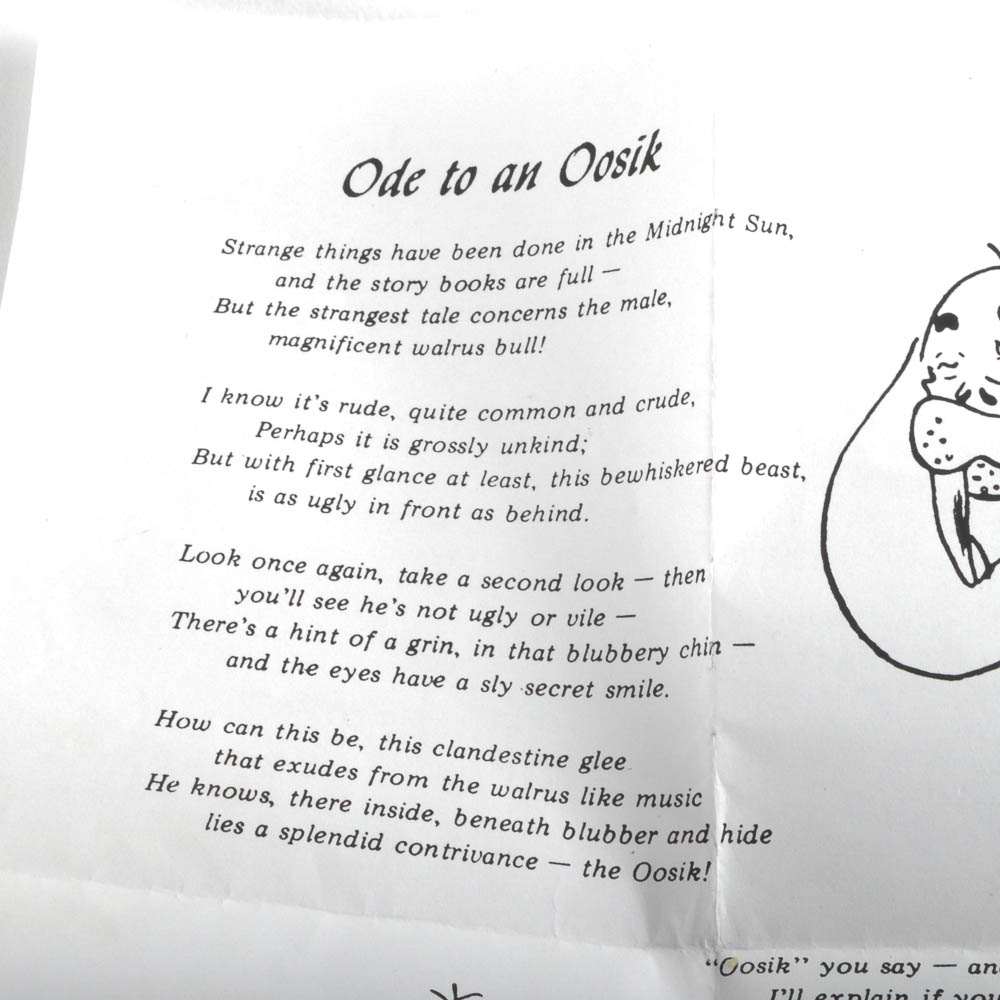 Ode to an Oosik
Strange things have been done in the Midnight Sun,
and the story books are full —
But the strangest tale concerns the male,
magnificent walrus bull!
I know it's rude, quite common and crude,
Perhaps it is grossly unkind;
But with first glance at least, this bewhiskered beast,
is as ugly in front as behind.
Look once again, take a second look — then
you'll see he's not ugly or vile —
There's a hint of a grin, in that blubbery chin —
and the eyes have a sly secret smile.
How can this be, this clandestine glee
that exudes from the walrus like music
He knows, there inside, beneath blubber and hide
lies a splendid contrivance — the Oosik!
"Oosik" you say — an
I'll explain if you